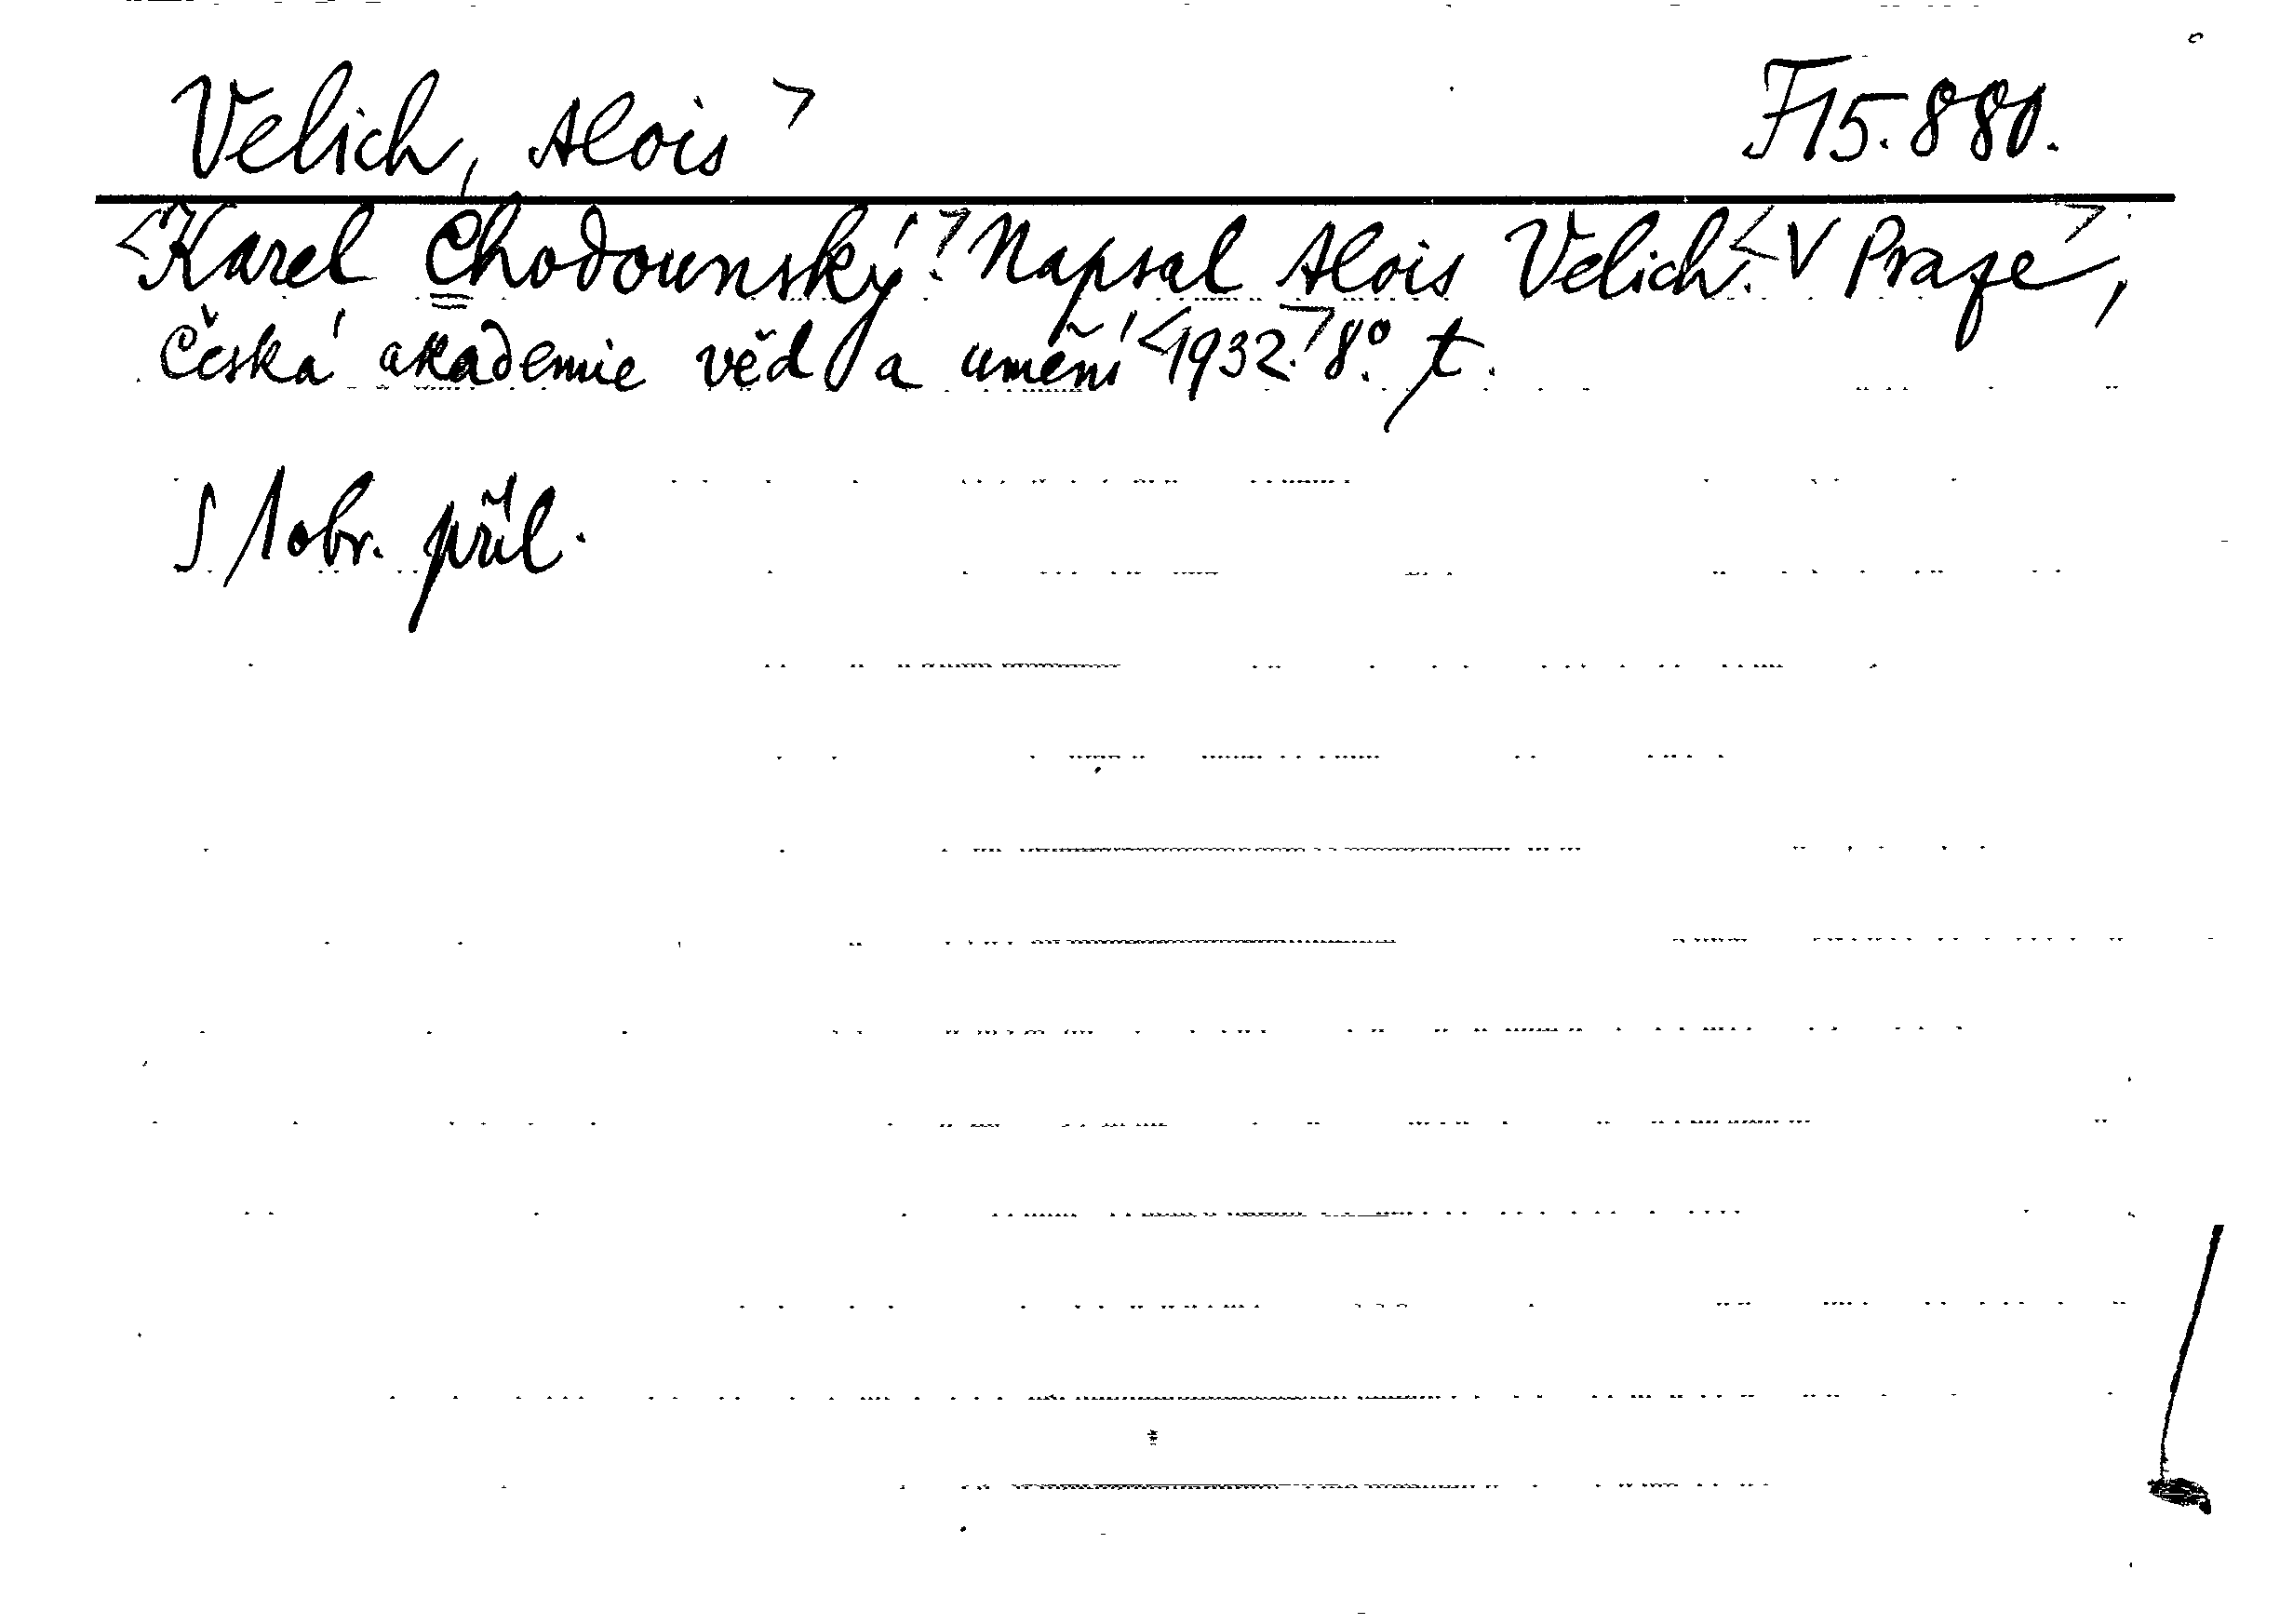 Velich, Alois> F15.880.
<Karel Chodounský.> Napsal Alois Velich.< V Praze>,
Česká akademie věd a umění <1932.> 8°. t.
S 1 obr. příl.